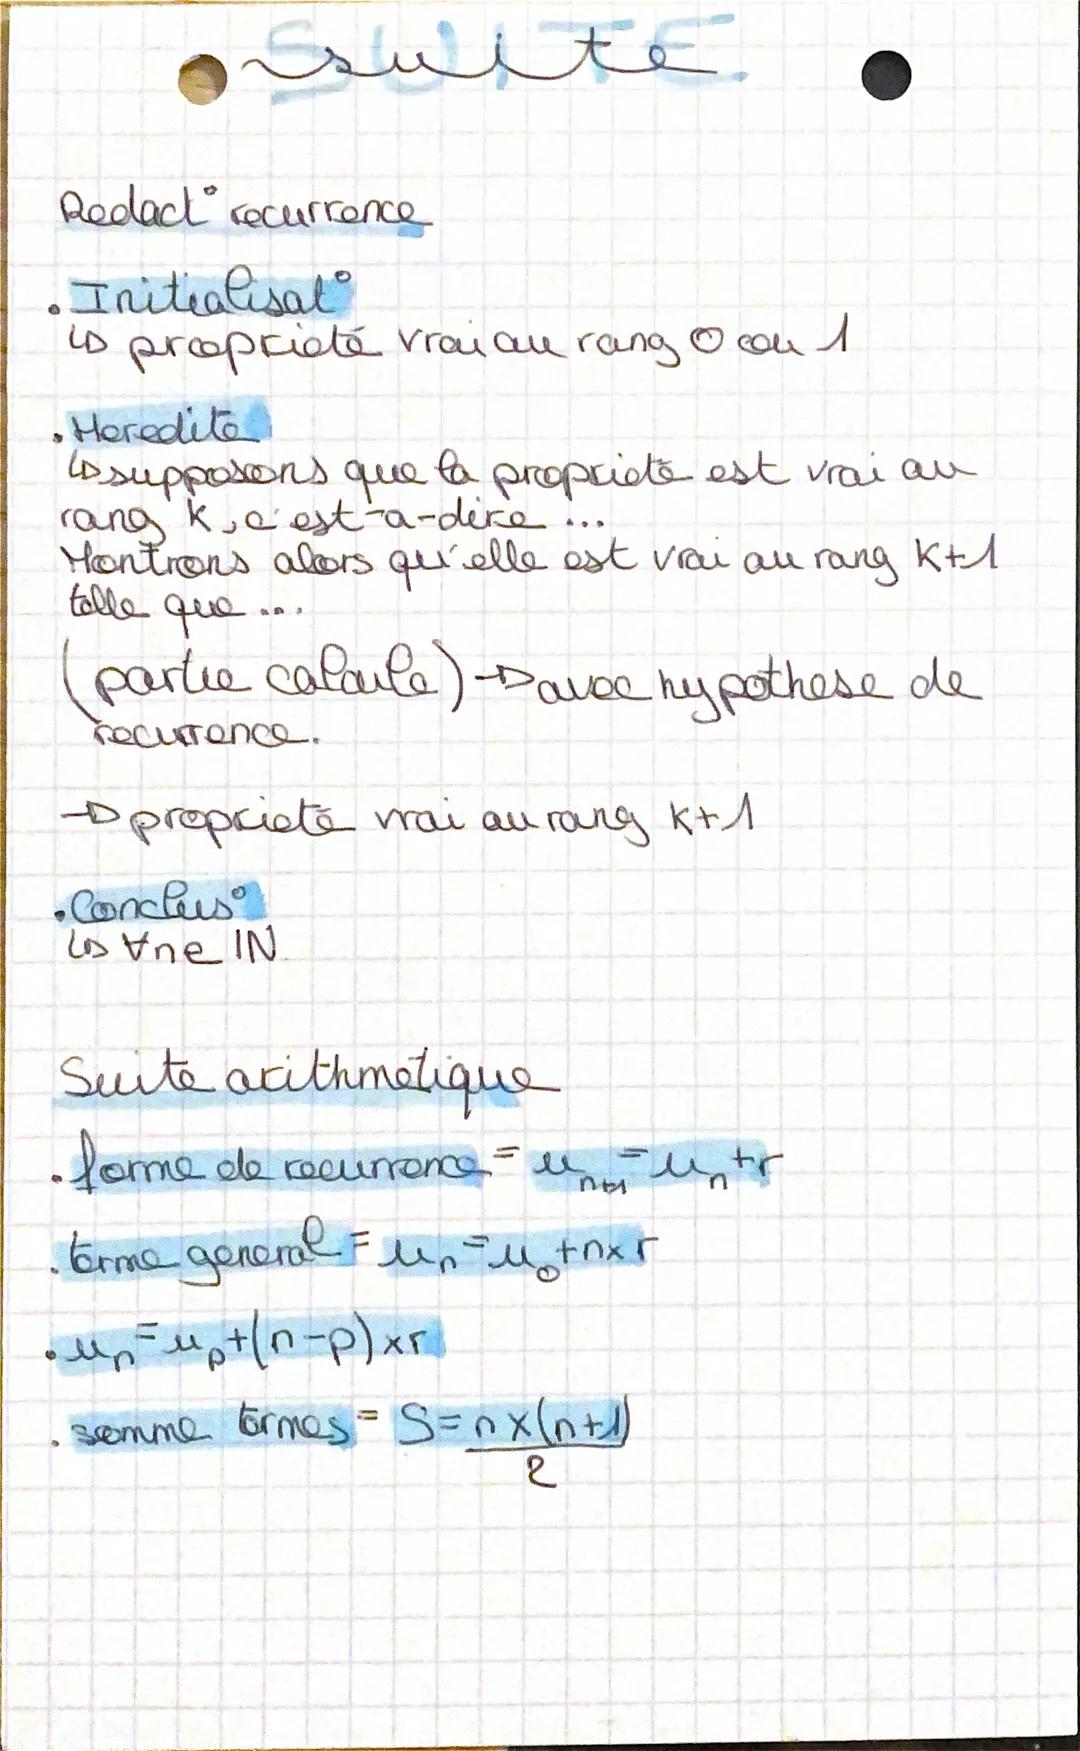 suite
SUITE.
Redact° recurrence
. Initialisat°
↳ propriété vrai au rang 0 ou 1
. Heredite
↳ supposons que la propriete est vrai au
rang k, c'est-a-dire ...
Montrons alors qu'elle est vrai au rang k+1
telle que ...
(partie calcule) → avec hypothese de
recurrence.
→ propriete vrai au rang k+1
. Conclus°
↳ ∀n∈ IN
Suite arithmetique
. forme de recurrence = u_{n+1} = u_n + r
. terme general = u_n = u_0 + n x r
. u_n = u_p + (n-p) x r
. somme termes = S = n x (n+1)
2